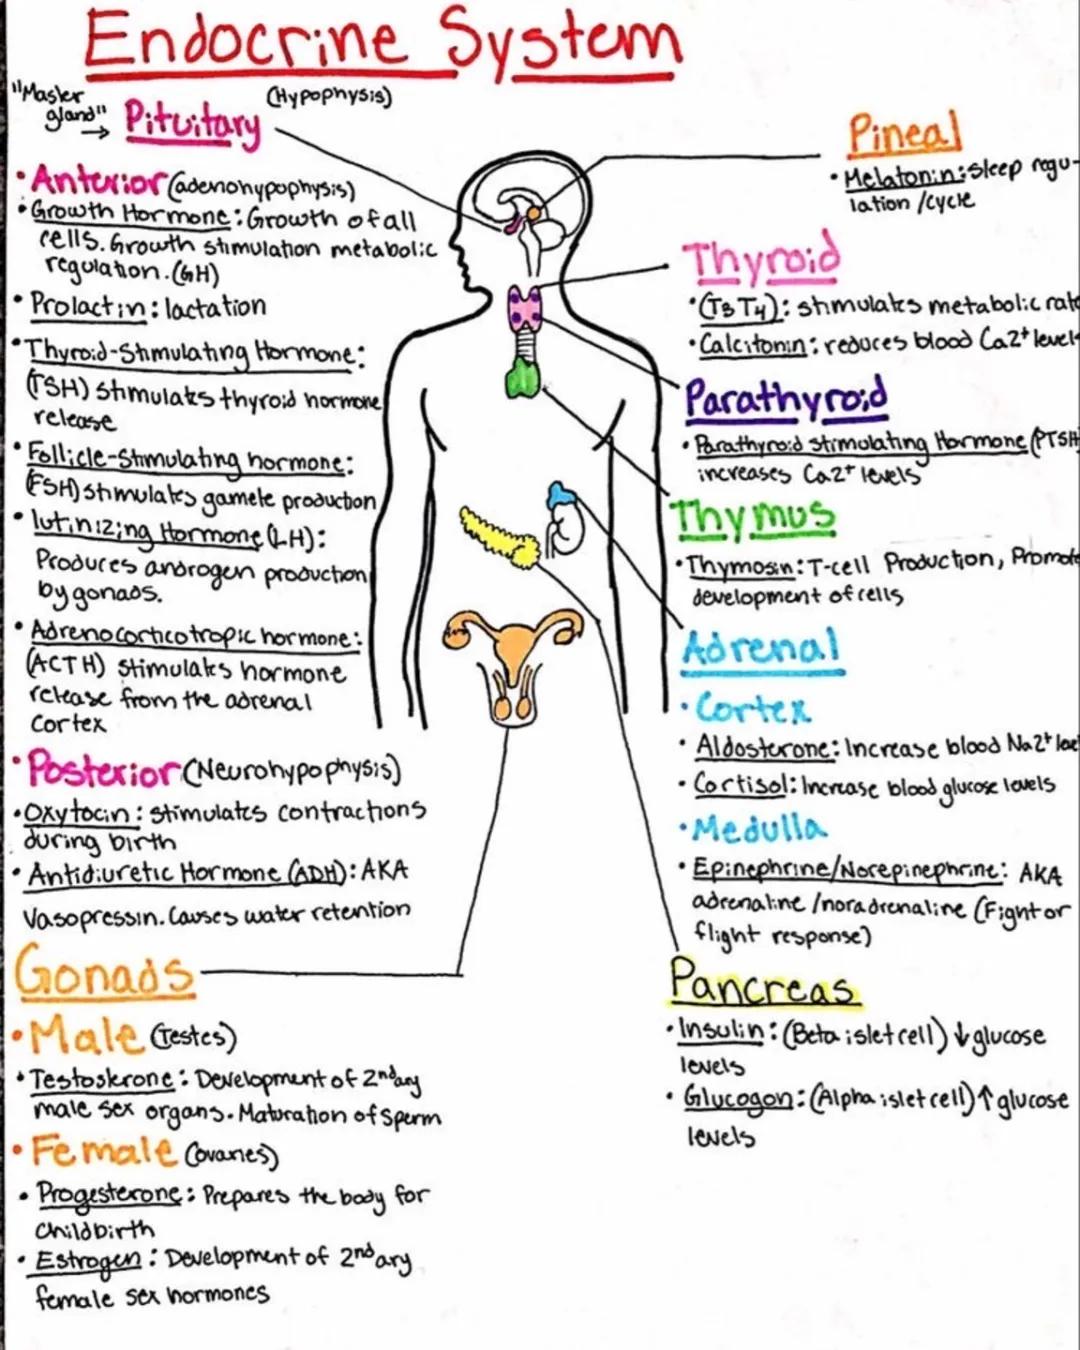 Endocrine System
"Master
gland"
→ Pituitary
(Hypophysis)
• Anterior (adenohypophysis)
• Growth Hormone: Growth of all
cells. Growth stimulation metabolic
regulation. (GH)
• Prolactin: lactation
• Thyroid-Stimulating Hormone:
(TSH) stimulates thyroid hormone
release
• Follicle-Stimulating hormone:
(FSH) stimulates gamete production
• lutinizing Hormone (LH):
Produces androgen production
by gonads.
• Adrenocorticotropic hormone:
(ACTH) stimulates hormone
release from the adrenal
cortex
• Posterior (Neurohypophysis)
• Oxytocin: stimulates contractions
during birth
• Antidiuretic Hormone (ADH): AKA
Vasopressin. Causes water retention
Gonads
• Male (Testes)
• Testosterone: Development of 2ndary
male sex organs. Maturation of sperm
• Female (ovaries)
• Progesterone: Prepares the body for
childbirth
• Estrogen: Development of 2ndary
female sex hormones
Pineal
• Melatonin: sleep regu-
lation /cycle
Thyroid
• (T3 T4): stimulates metabolic rate
• Calcitonin: reduces blood Ca2+ levels
Parathyroid
• Parathyroid stimulating Hormone (PTSH
increases Ca2+ levels
Thymus
• Thymosin: T-cell Production, Promote
development of cells
Adrenal
• Cortex
• Aldosterone: Increase blood Na2+
• Cortisol: Increase blood glucose levels
• Medulla
• Epinephrine/Norepinephrine: AKA
adrenaline /noradrenaline (Fight or
flight response)
Pancreas
• Insulin: (Beta islet cell) ↓ glucose
levels
• Glucogon: (Alpha islet cell) ↑ glucose
levels